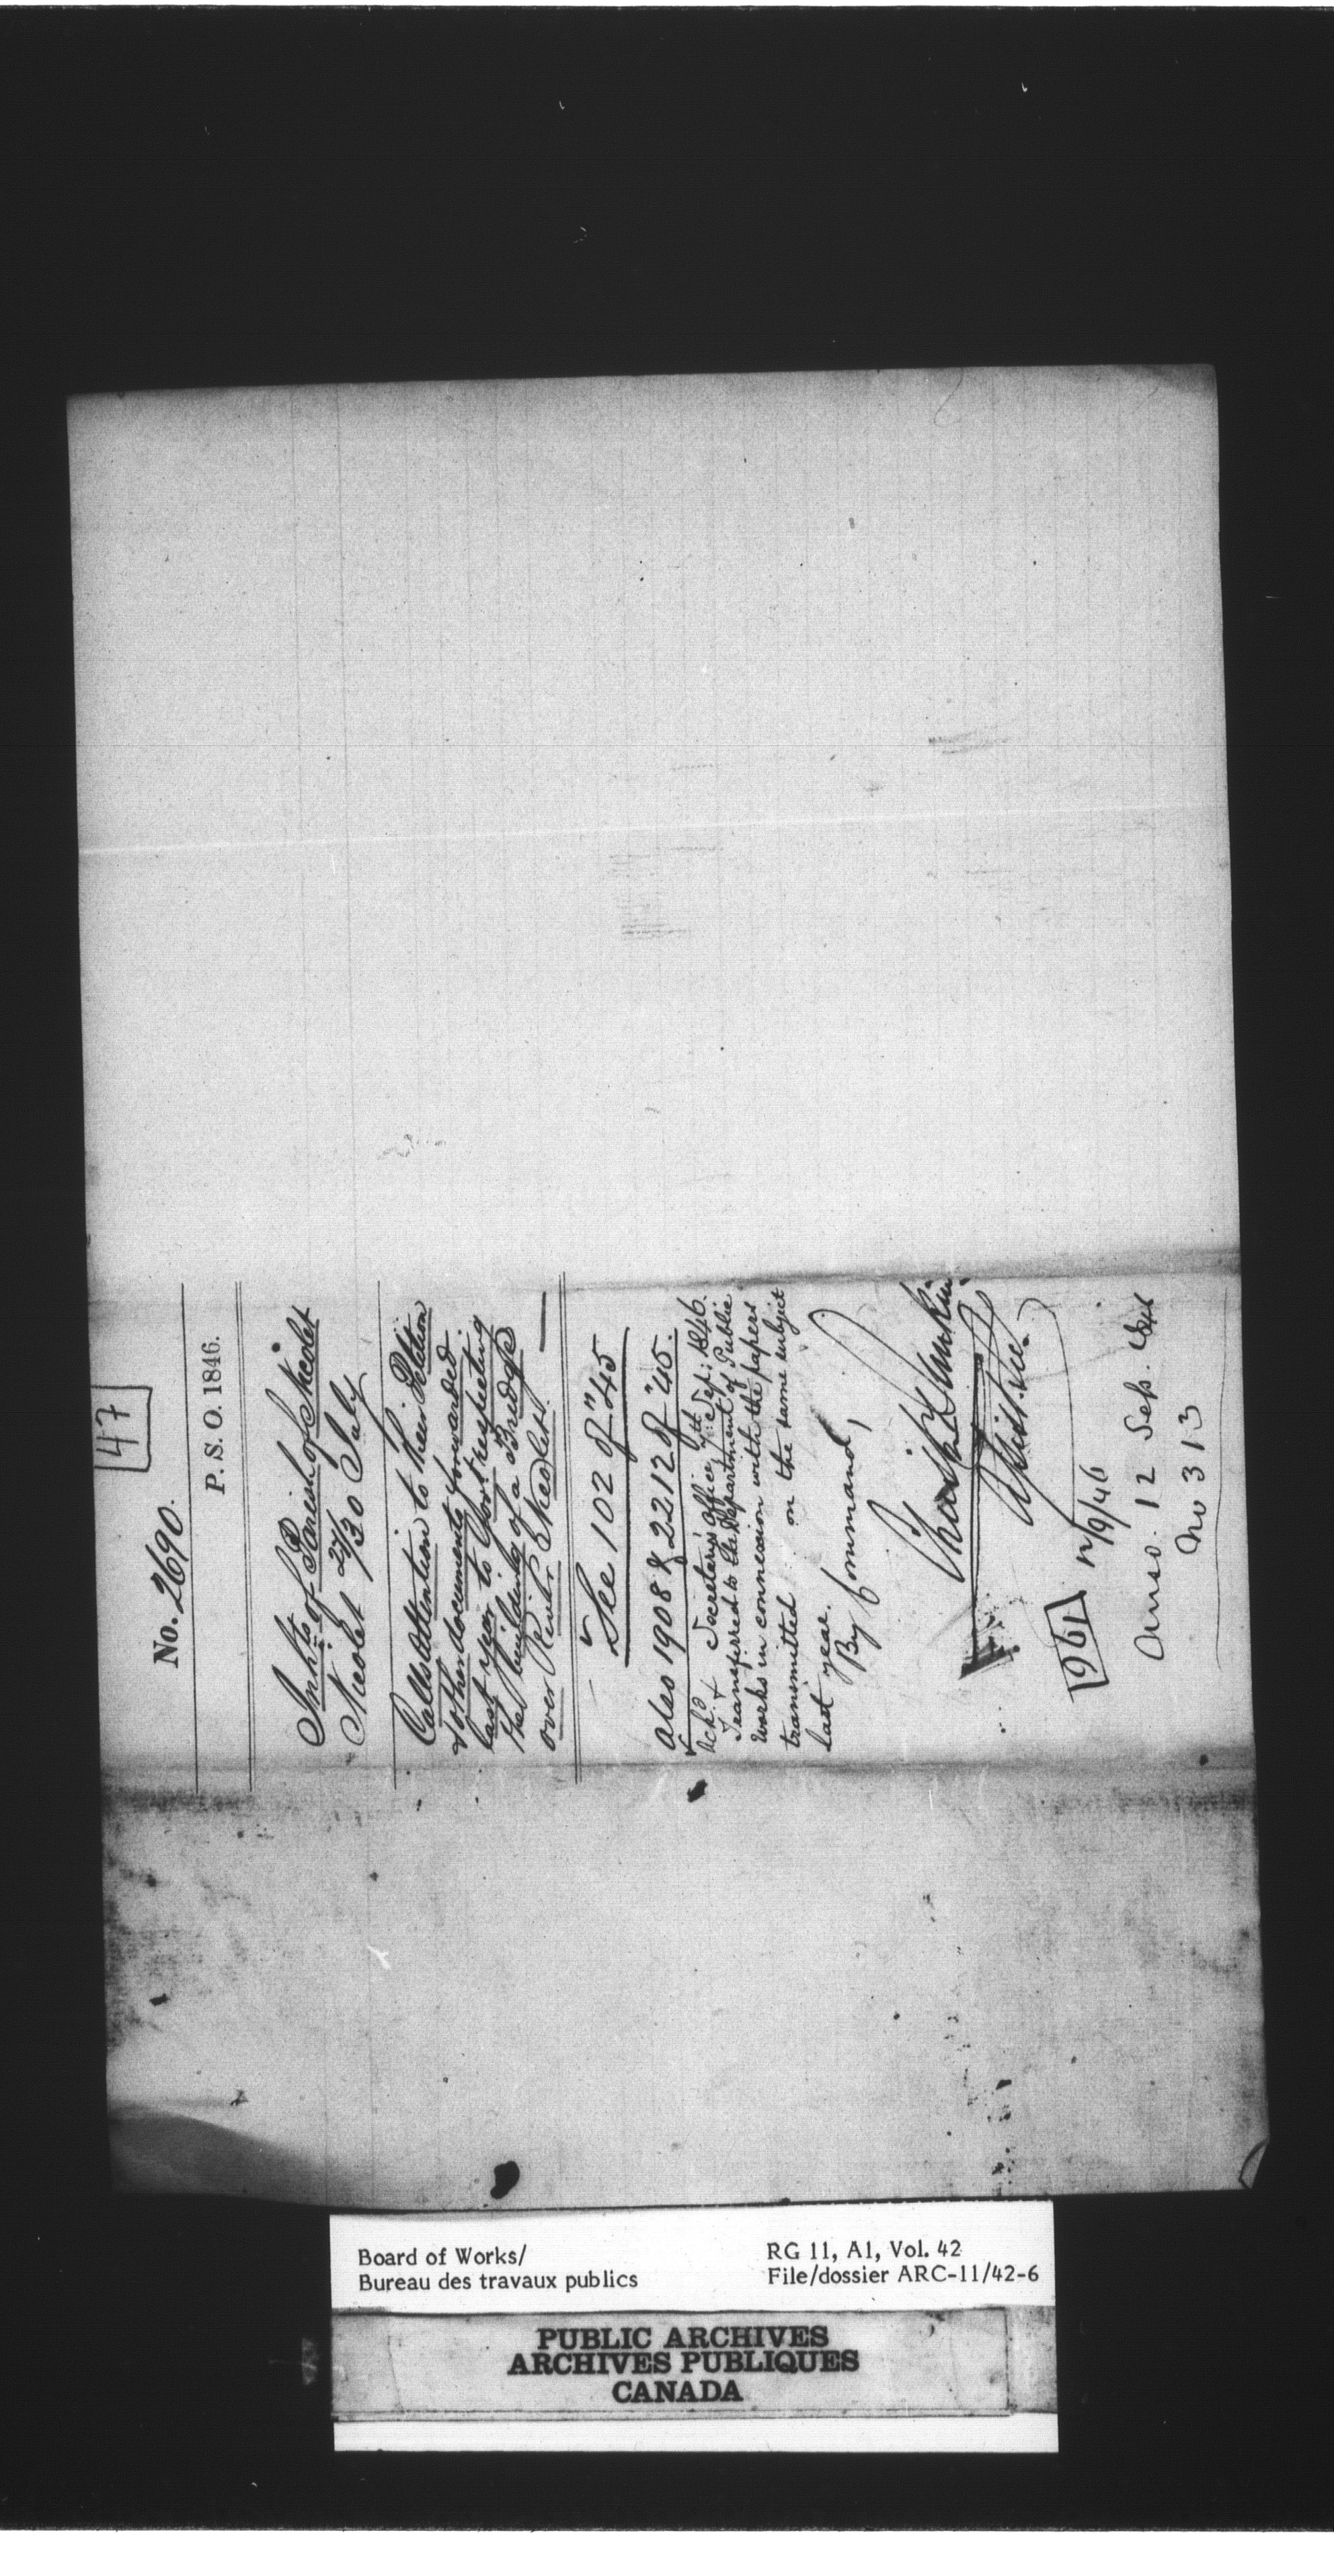 47
No. 2690.
P. S. O. 1846.
Inhts of Parish of Nicolet
Nicolet 27/30 July
Calls attention to their Petition
& other documents forwarded
last year to Govt respecting
the building of a Bridge
over River Nicolet.
See 102 of "45
also 1908 & 2212 of "45.
Ackd & Secretary's Office, 7th Sep: 1846.
Transferred to the Department of Public
Works in connexion with the papers
transmitted on the same subject
last year.
By Command,
1961 12/9/46
Answd. 12 Sep.
No 313
Board of Works/
Bureau des travaux publics
RG 11, A1, Vol. 42
File/dossier ARC-11/42-6
PUBLIC ARCHIVES
ARCHIVES PUBLIQUES
CANADA